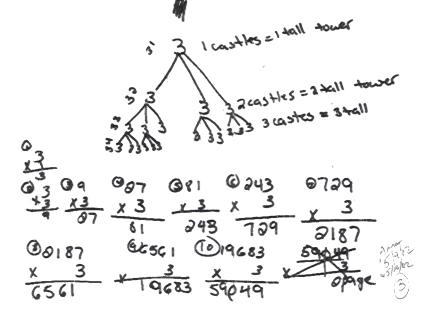 3¹ 3 1 castles = 1 tall tower
3² 3 3 3 2 castles = 2 tall tower
3 3 3 3 3 3 3 3 3 3 castes = 3 tall
① ② ③ 9 ④ 27 ⑤ 81 ⑥ 243 ⑦ 729
1 3 x 3 x 3 x 3 x 3 x 3
x 3 x 3 27 81 243 729 2187
3 9
⑧ 2187 ⑨ 6561 ⑩ 19683 59049
x 3 x 3 x 3 x 3
6561 19683 59049 page
③